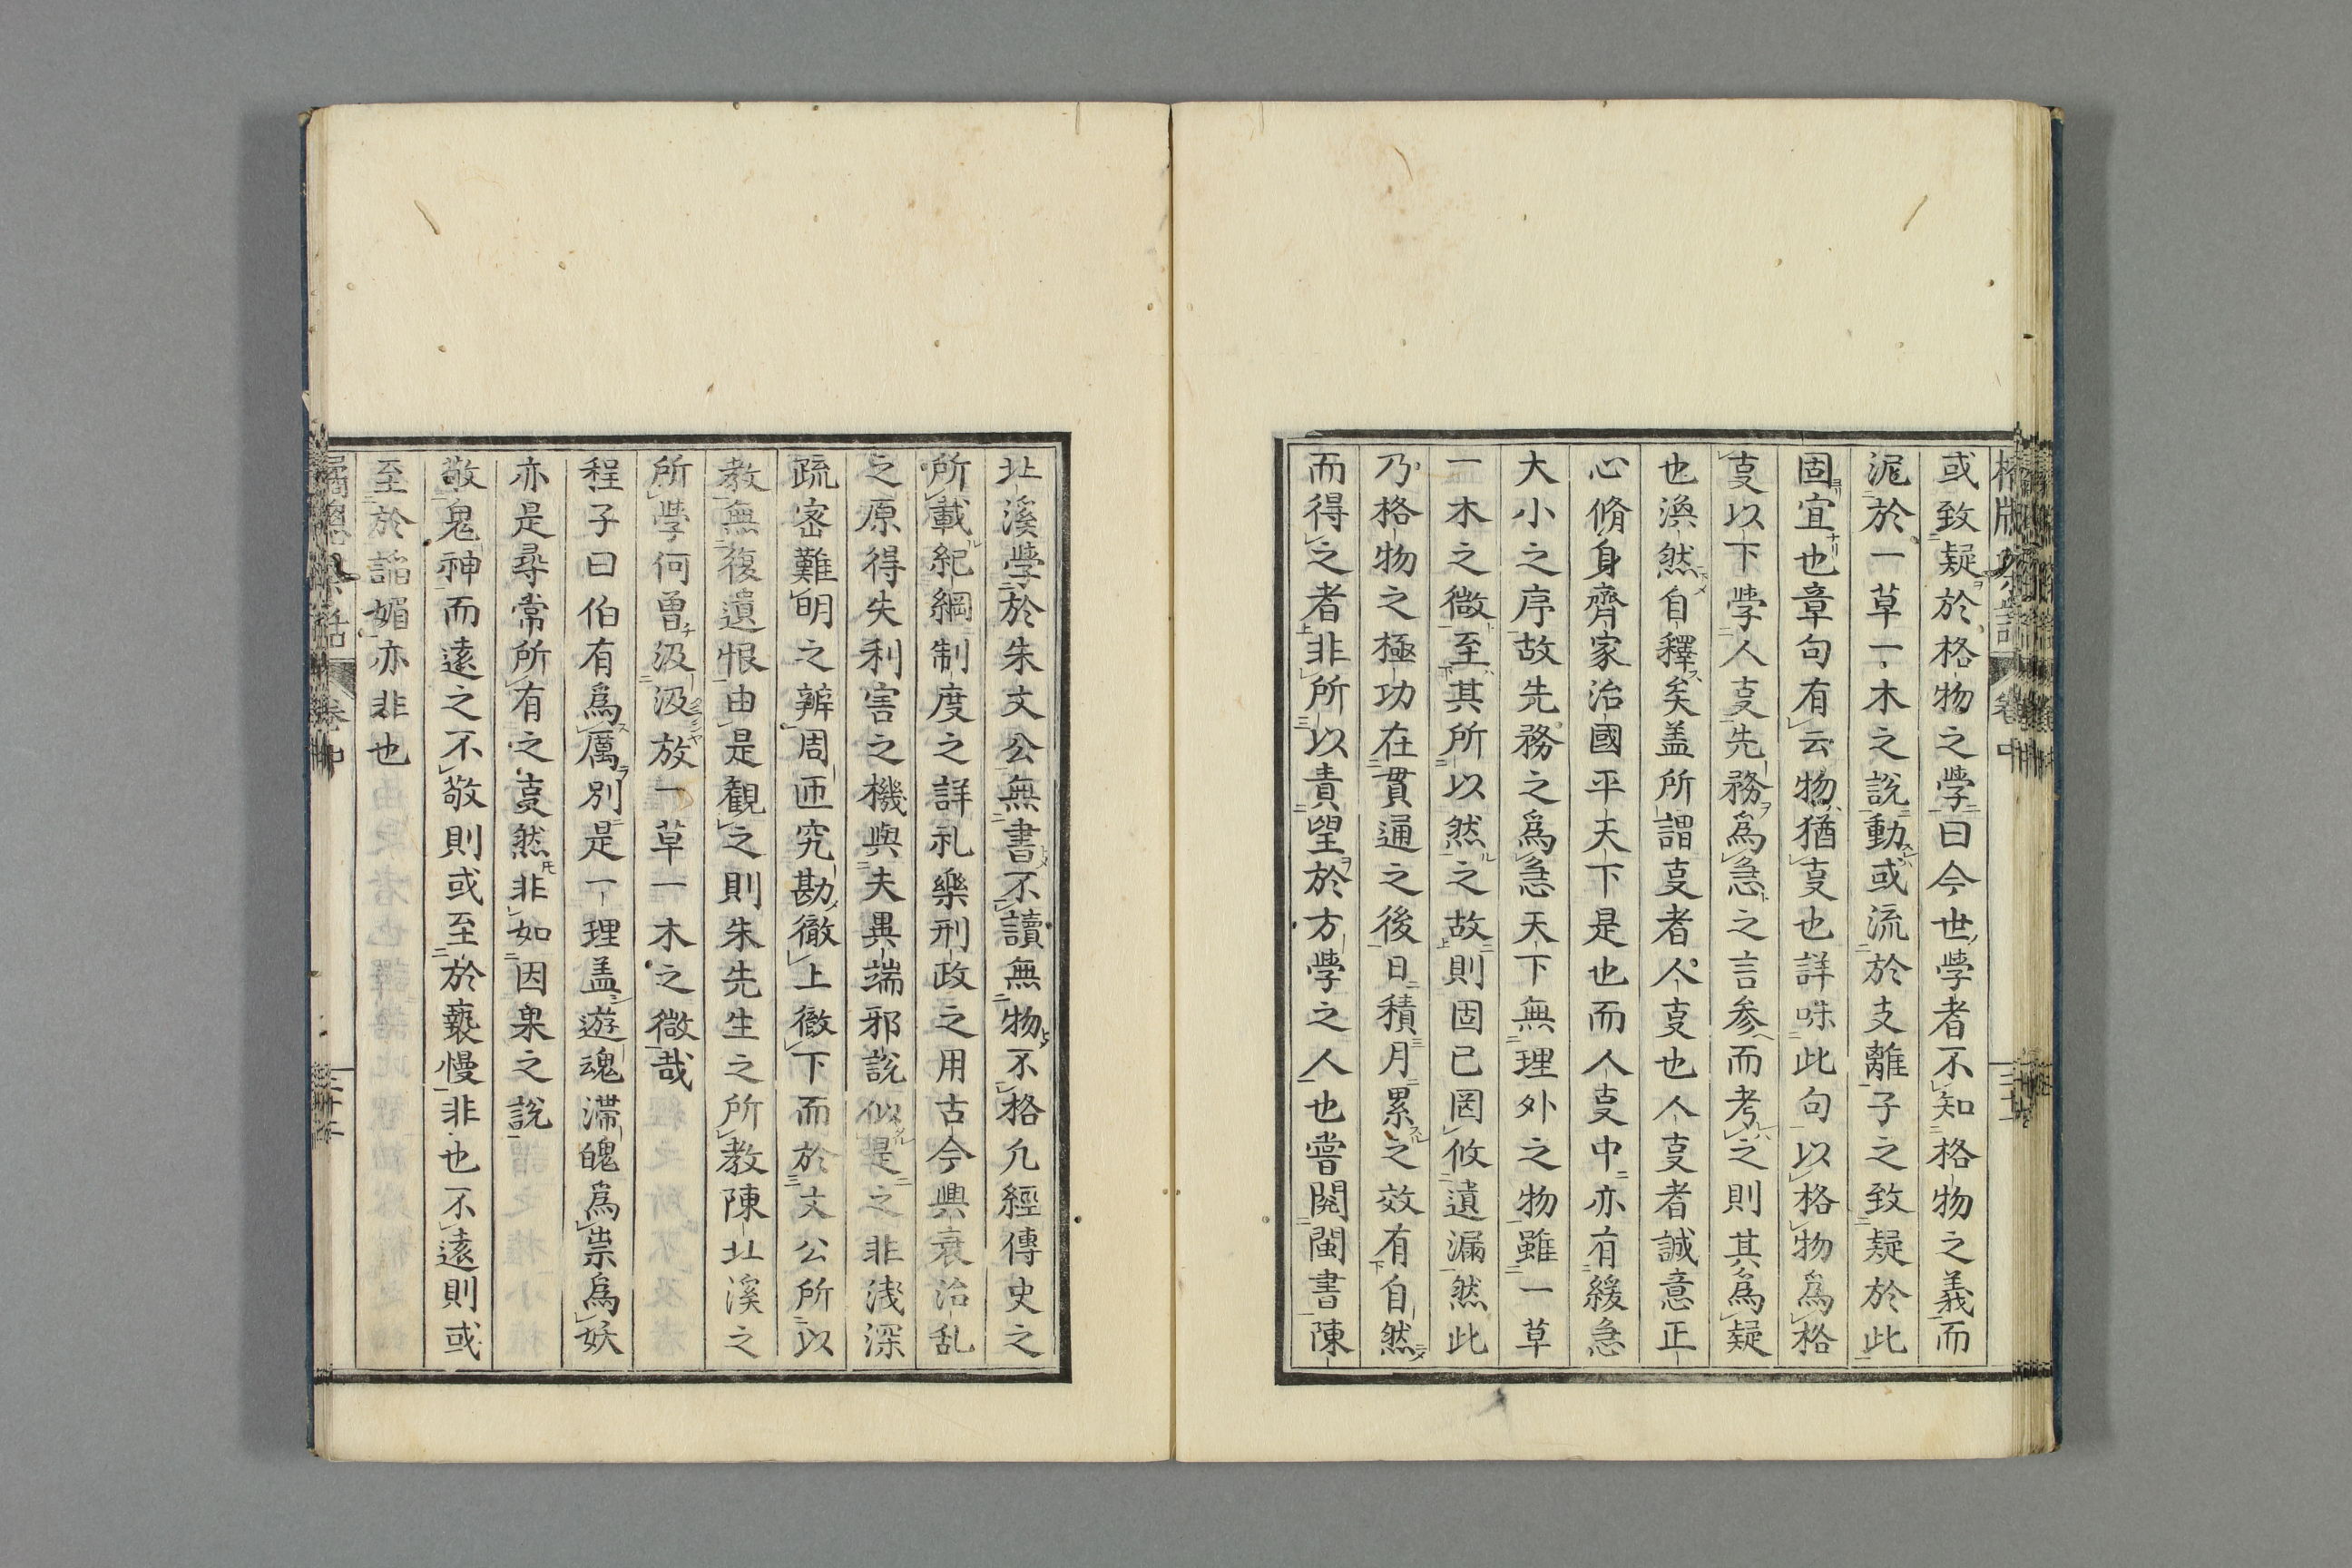 或致疑於格物之學曰今世學者不知格物之義而
泥於一草一木之說動或流於支離子之致疑於此
固宜也章句有云物猶事也詳味此句以格物爲格
事以下學人事先務爲急之言參而考之則其爲疑
也渙然自釋矣盖所謂事者人事也人事者誠意正
心脩身齊家治國平天下是也而人事中亦有緩急
大小之序故先務之爲急天下無理外之物雖一草
一木之微至其所以然之故則固已罔攸遺漏然此
乃格物之極功在貫通之後日積月累之效有自然
而得之者非所以責望於方學之人也嘗閱閩書陳
北溪學於朱文公無書不讀無物不格凡經傳史之
所載紀綱制度之詳礼樂刑政之用古今興衰治乱
之原得失利害之機與夫異端邪說似是之非淺深
疏宻難明之辨周匝究勘徹上徹下而於文公所以
教無復遺恨由是觀之則朱先生之所教陳北溪之
所學何曾汲汲放一草一木之微哉
程子曰伯有爲厲別是一理盖遊魂滞魄爲祟爲妖
亦是尋常所有之事然非如因果之說
敬鬼神而遠之不敬則或至於褻慢非也不遠則或
至於諂媚亦非也